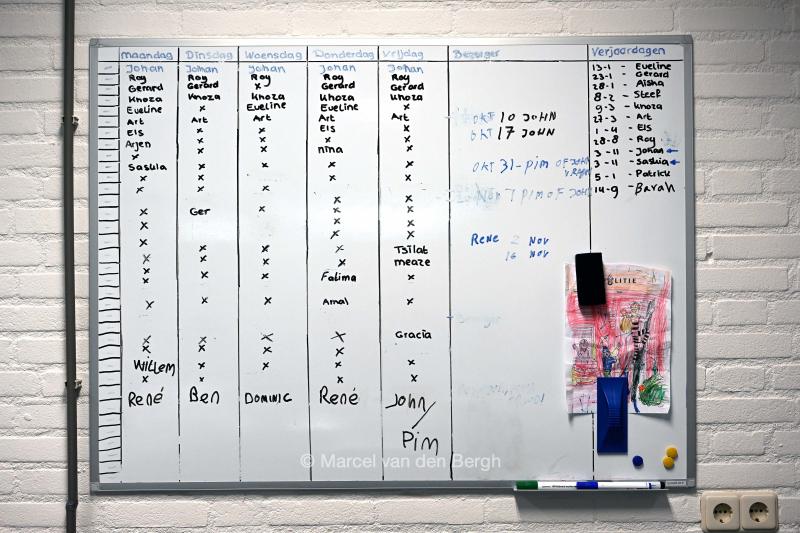 maandag Dinsdag Woensdag Donderdag Vrijdag Bezorger Verjaardagen
Johan Johan Johan Johan Johan 13-1 - Eveline
Roy Roy Roy Roy Roy 23-1 - Gerard
Gerard Gerard x Gerard Gerard 28-1 - Aisha
Khoza Khoza Khoza Khoza Khoza 8-2 - Steef
Eveline x Eveline Eveline x 9-3 - Khoza
Art Art Art Art Art OKT 10 JOHN 27-3 - Art
Els x x Els x OKT 17 JOHN 1-4 - Els
Arjen x x nina x 28-8 - Roy
3-11 - Johan
Saskia x x x x OKT 31-pim OF JOHN 3-11 - Saskia
x x x x x 5-1 - Patrick
x x x x x NOV 7 PIM OF JOHN 14-9 - Barah
x Ger x x x
x x x
x x x x Tsilat Rene 2 NOV
x x x x meaze 16 NOV
x x x Fatima x
x x x Amal x
x x x x Gracia
x x x x
Willem x x x x
x x x x
René Ben DOMINIC René John/
Pim
POLITIE
© Marcel van den Bergh